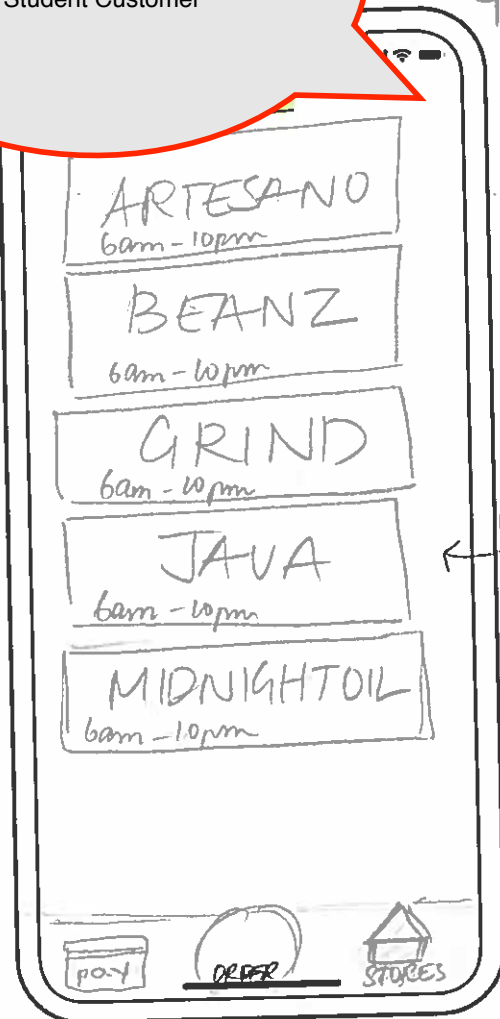 Student Customer
ARTESANO
6am-10pm
BEANZ
6am-10pm
GRIND
6am-10pm
JAVA
6am-10pm
MIDNIGHTOIL
6am-10pm
pay
ORDER
STORES